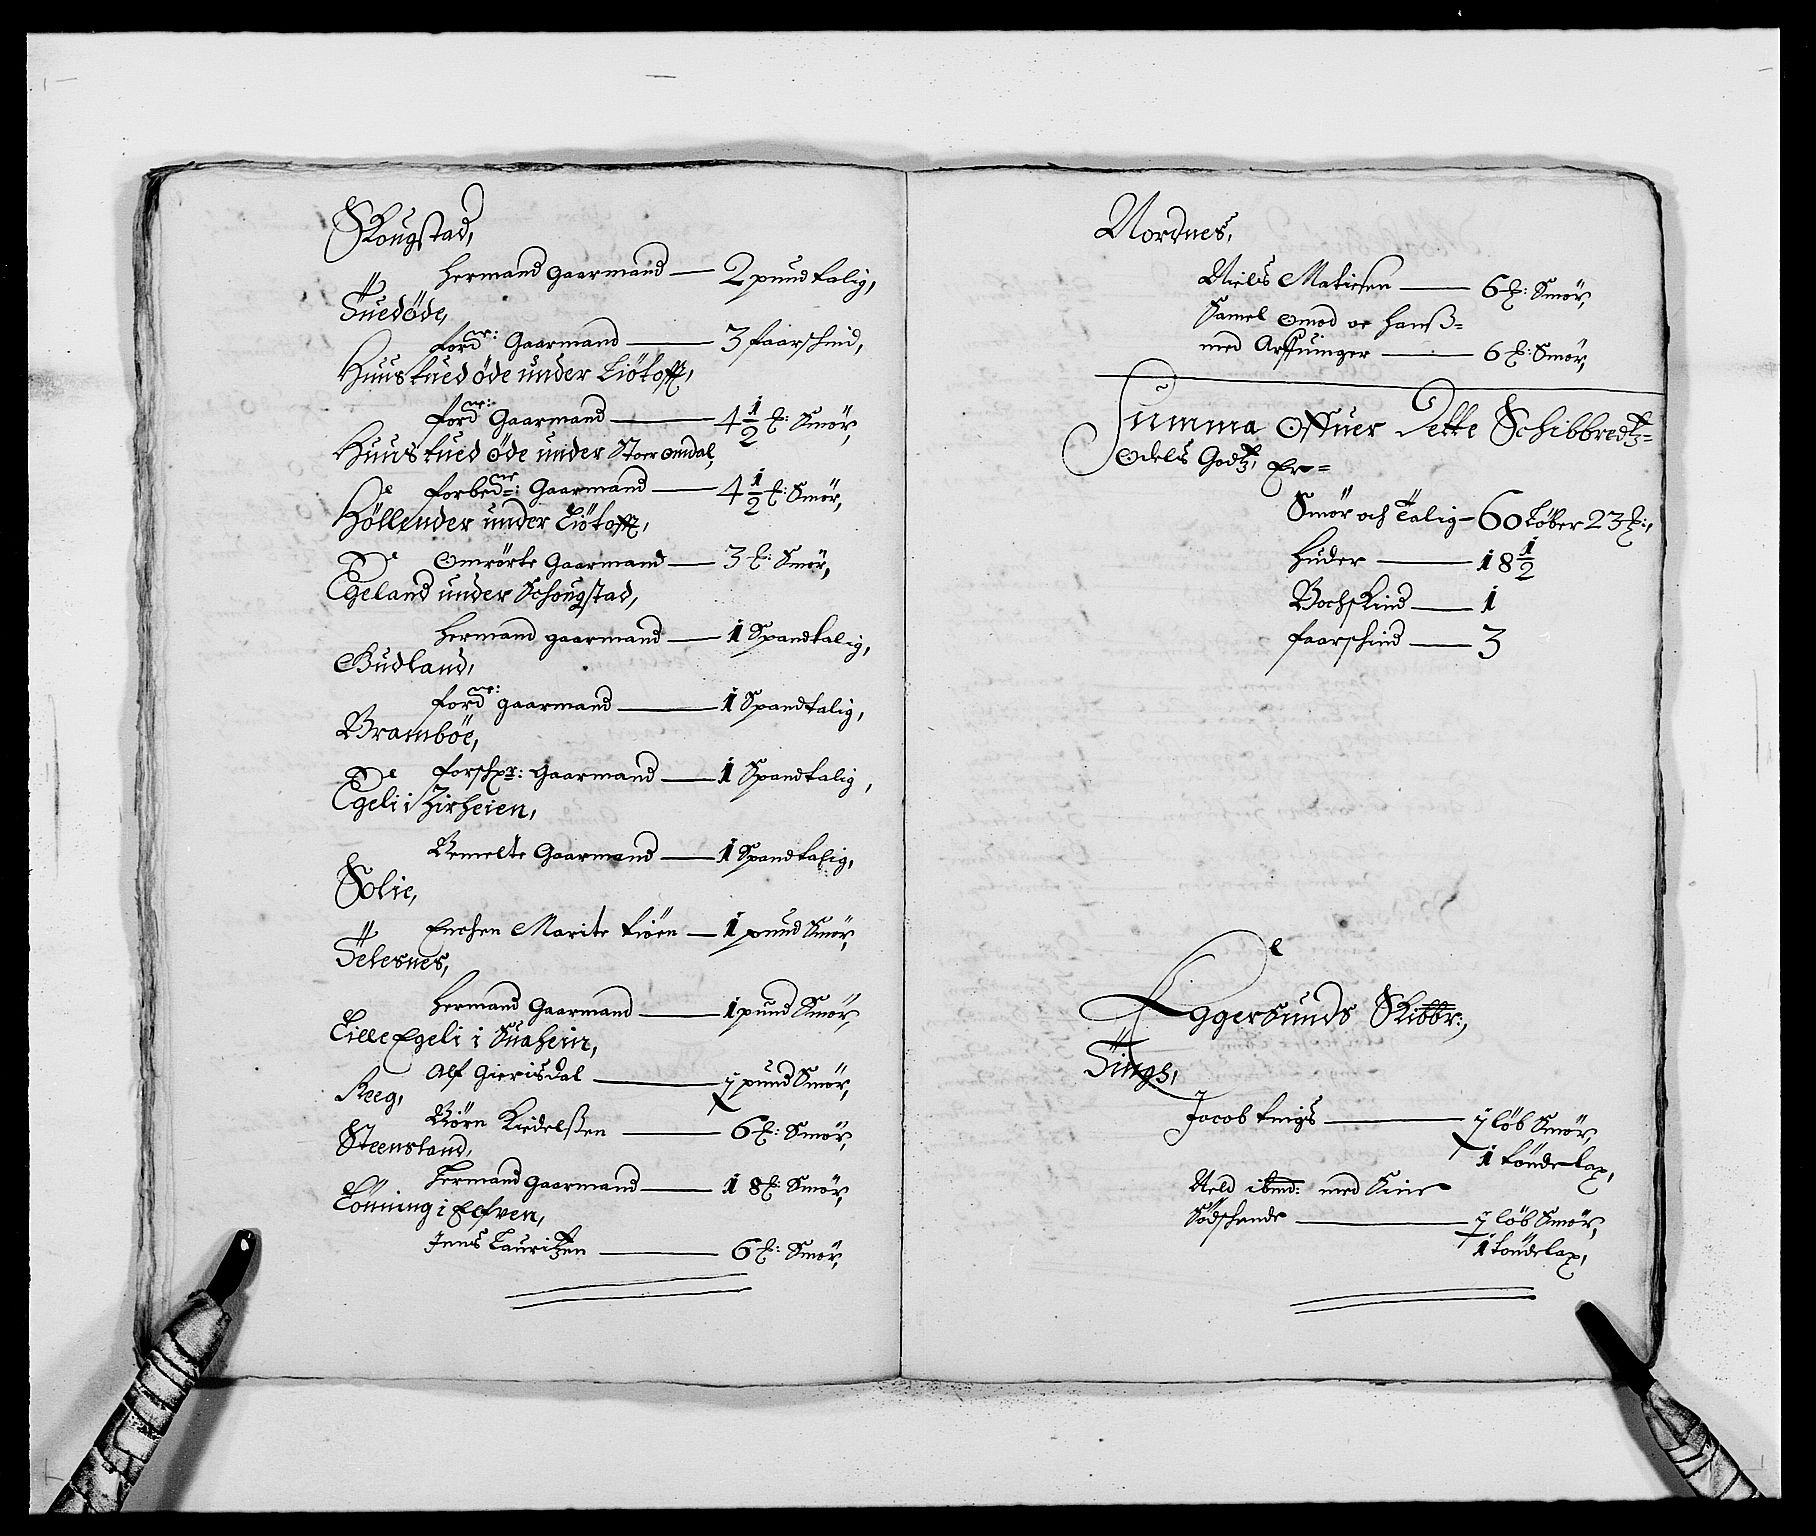 Skougstad,
Hermand Gaarmand — 2 pund talig,
Tuedöde,
ford nr: Gaarmand — 3 faarskind,
Huus tued öde under Liötoff,
ford nr: Gaarmand — 4 1/2 ℔: Smör,
Huus tued öde under Stoer omdal,
forbe dnr: Gaarmand — 4 1/2 ℔: Smör,
Höllender under Liötoff,
Omrörte Gaarmand — 3 ℔: Smör,
Egeland under Schougstad,
Hermand gaarmand — 1 Spand talig,
Gudland,
ford nr: gaarmand — 1 Spand talig,
Bramböe,
forschr: Gaarmand — 1 Spand talig,
Egeli i Hirheien,
Bemelte Gaarmand — 1 Spand talig,
Solie,
Enchen Marite — 1 pund Smör,
Telesnes,
Hermand Gaarmand — 1 pund Smör,
Lille Egeli i Suaheir,
Alf Gierisdal — j pund Smör,
Reeg,
Biörn Kiedelßen — 6 ℔: Smör,
Steensland,
Hermand Gaarmand — 18 ℔: Smör,
Lönning i Eefven,
Jens Lauritzen — 6 ℔: Smör,
Nordnes,
Niels Matiesen — 6 ℔: Smör,
Samel omod oc Hanß=
med Arfuinger — 6 ℔: Smör,
Summa Offuer Dette Schibbredtz=
Odels Godtz, Er=
Smör och Talig — 60 Löber 23 ℔:,
Huder — 18 1/2
Bochskind — 1
faarskind — 3
Eggersunds Skibbr:,
Tings,
Jacob tings — j löb Smör,
1 tönde lax,
Neld ibmd: med Sine
Södschende — j löb Smör,
1 tönde lax,